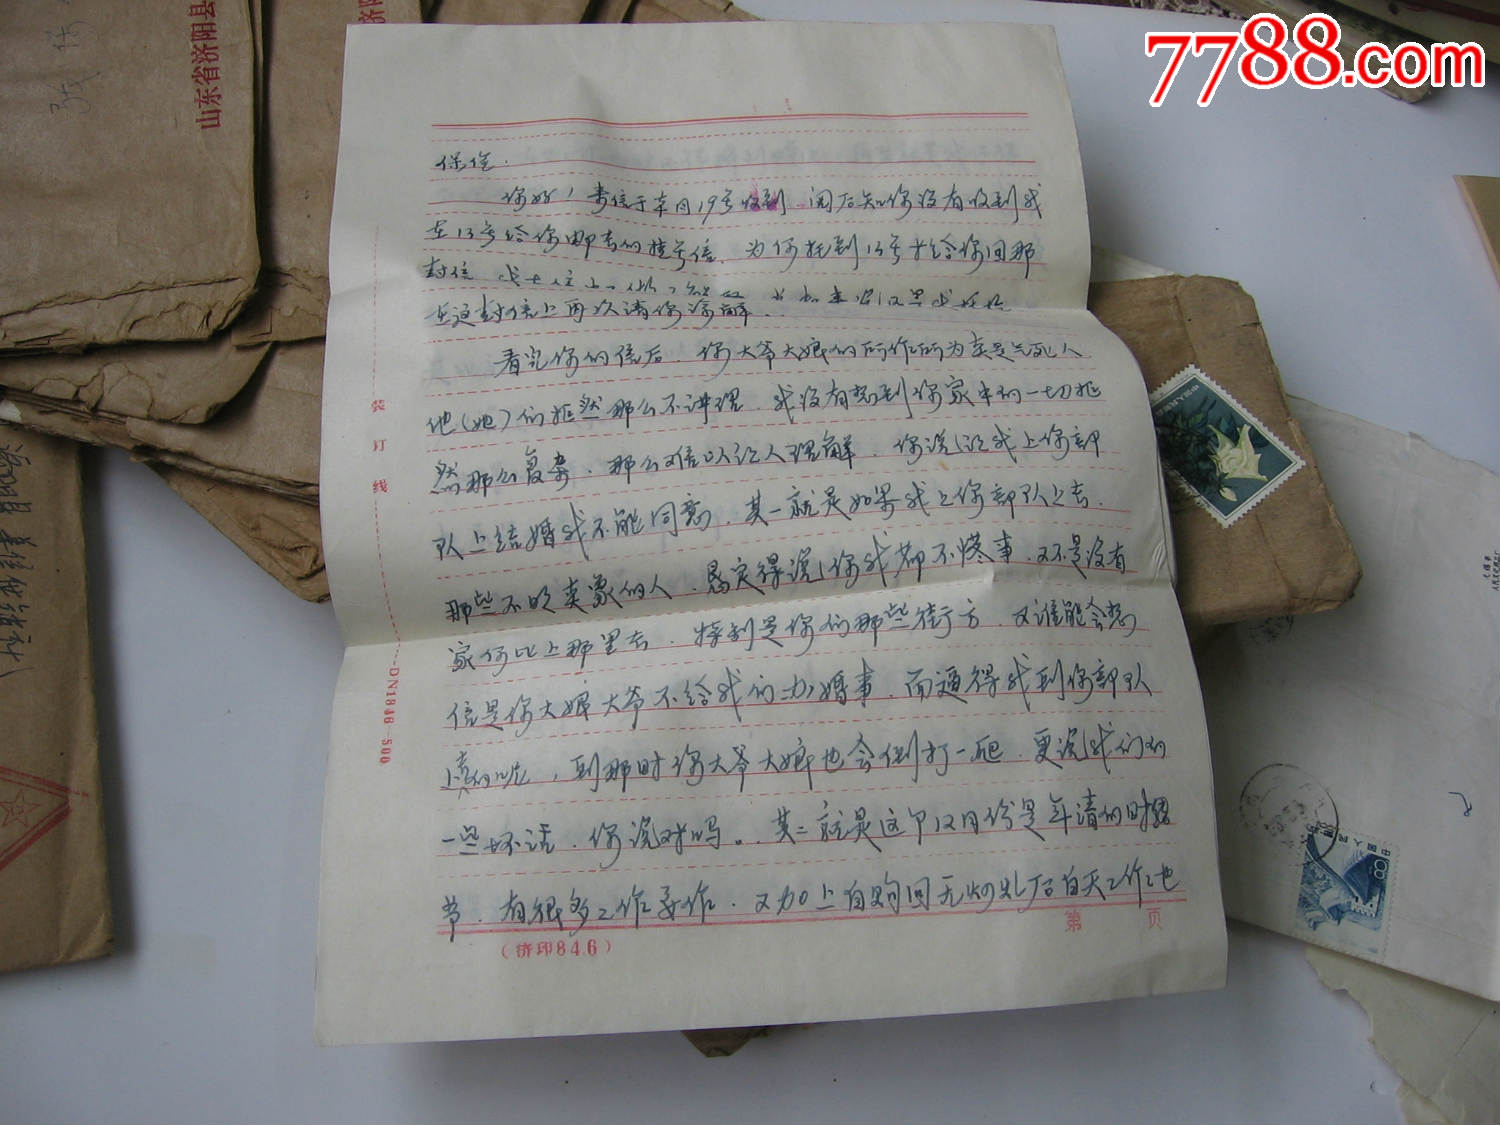 7788.com
山东省济阳县
张保
保信.
你好！来信于本月19号收到 阅后知你没有收到我
在13号给你邮去的挂号信. 为何托到13号才给你回那
封信
在这封信上再次请你谅解..
看完你的信后. 你大爷大娘的所作所为真是气死人
他(她)们姖然那么不讲理. 我没有想到你家中的一切姖
然那么复杂. 那么难以让人理解. 你说让我上你部
队上结婚我不能同意. 其一就是如果我上你部队上去.
那些不明真象的人. 恳定得说你我都不懂事. 又不是没有
家何必上那里去. 特别是你们那些街方. 又谁能会想
信是你大娘大爷不给我们办婚事. 而逼得我到你部队
去的呢, 到那时你大爷大娘也会倒打一爬. 更说我们的
一些坏话. 你说对吗.. 其二就是这个12月份是年清的时
节. 有很多工作要作. 又加上自从回无 后白天工作也
装订线
DN1846—500
(济印84.6)
第 页
中国人民邮政
8